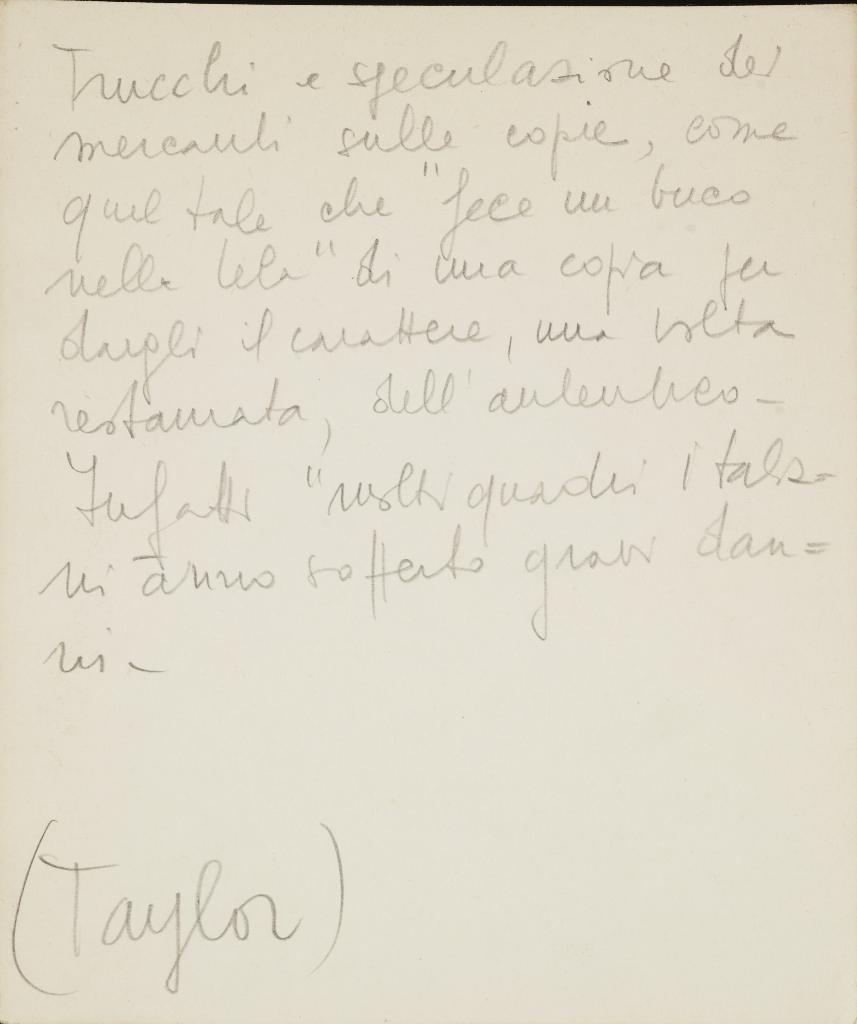 Trucchi e speculazione dei
mercanti sulle copie, come
quel tale che "fece un buco
nella tela" di una copia per
dargli il carattere, una volta
restaurata, dell'autentico –
Infatti "molti quadri Italia-
ni ànno sofferto gravi dan=
ni –
(Taylor)